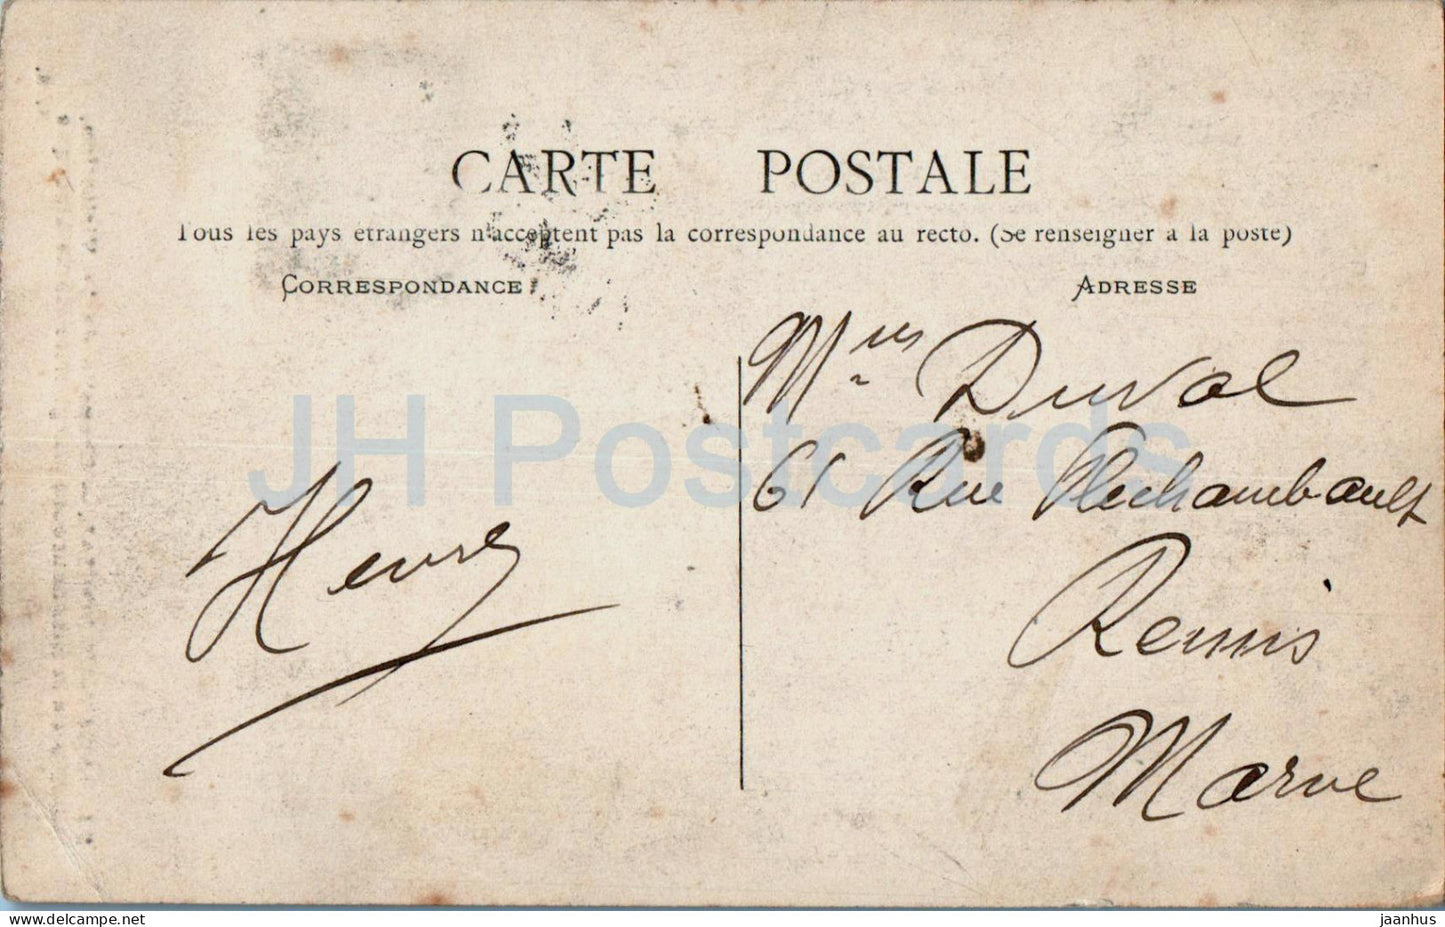 CARTE POSTALE
Tous les pays étrangers n'acceptent pas la correspondance au recto. (Se renseigner à la poste)
CORRESPONDANCE
ADRESSE
Mlles Duval
61 Rue Clechambault
Reims
Marne
Henry
JH Postcards
delcampe.net
jaanhus